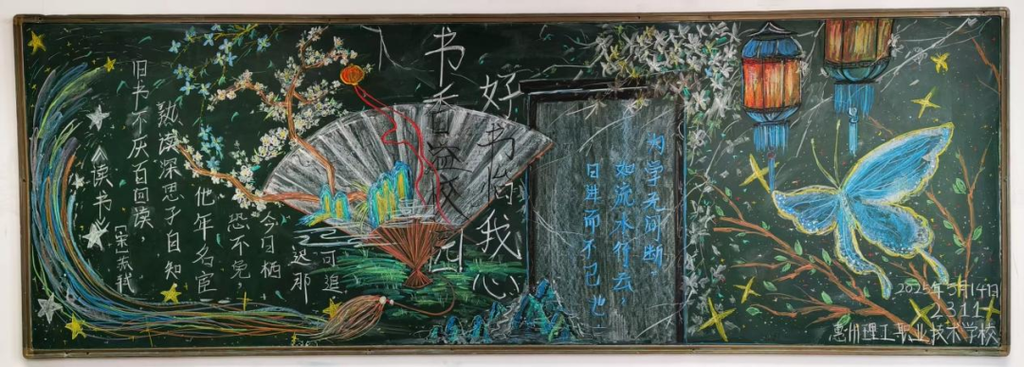 《读书》
[宋]苏轼
旧书不厌百回读,
孰读深思子自知
他年名宦
恐不免,
今日栖
迟那
可追
书香溢校园
好书怡我心
为学无间断
如流水行云,
日进而不已也
2025年3月14日
2311
惠州理工职业技术学校